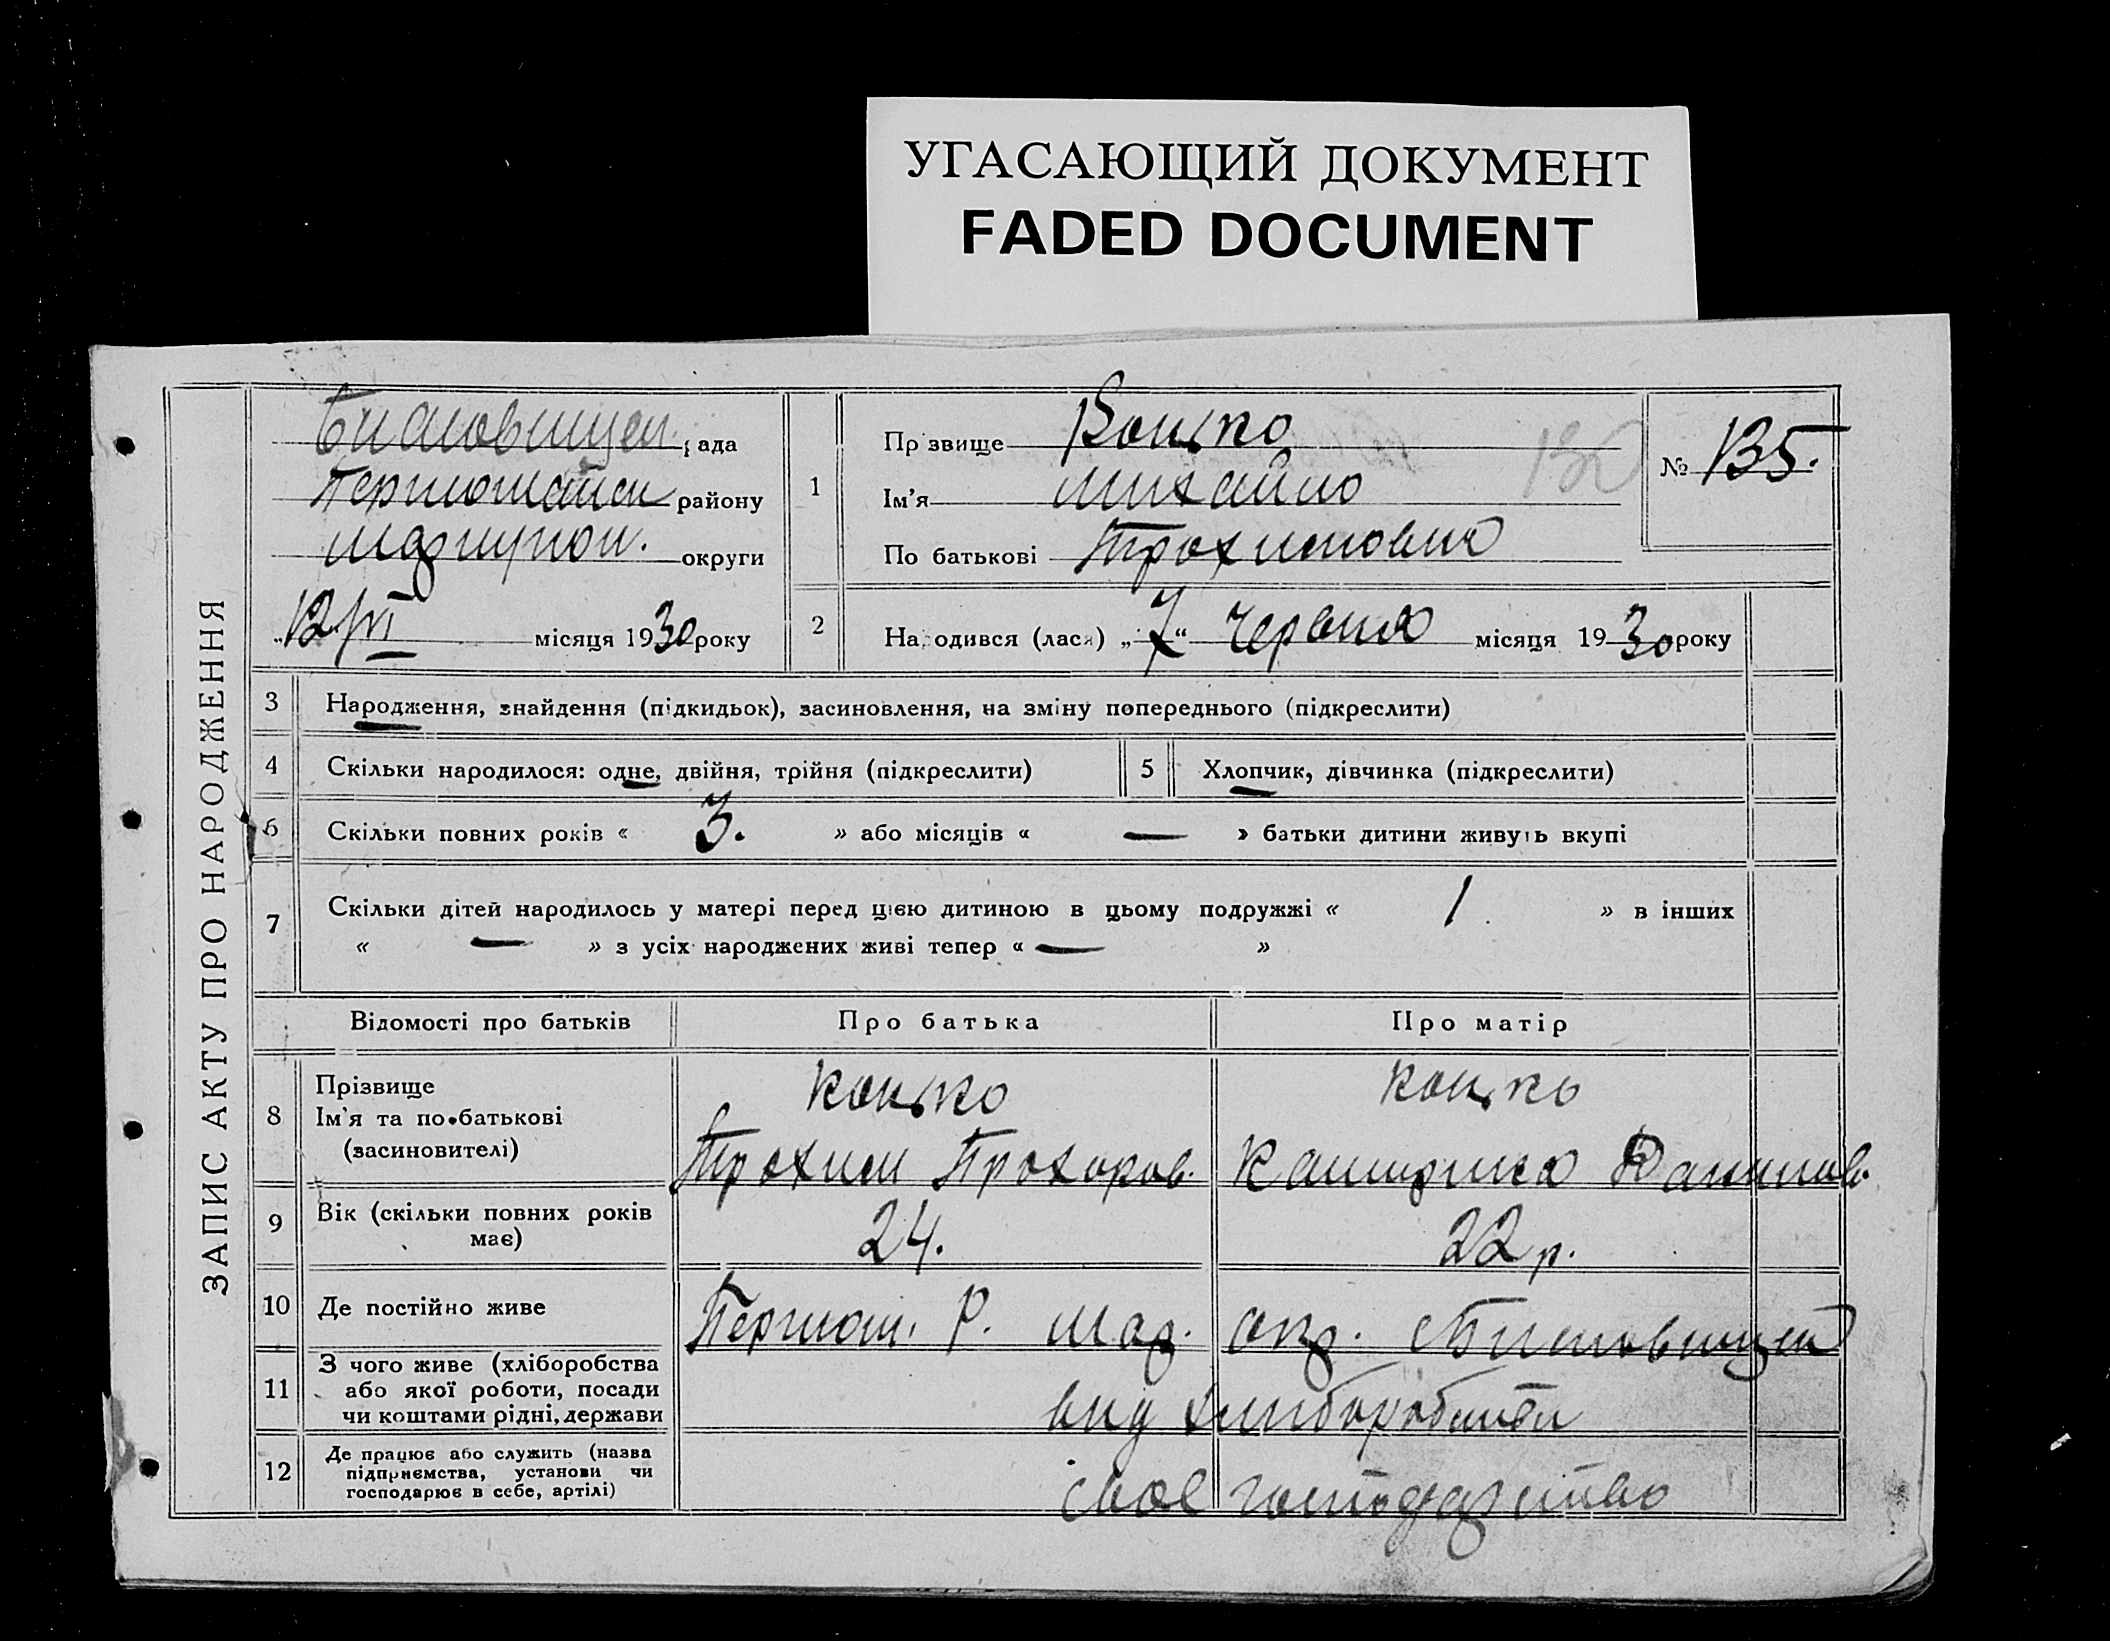 УГАСАЮЩИЙ ДОКУМЕНТ
FADED DOCUMENT
ЗАПИС АКТУ ПРО НАРОДЖЕННЯ
рада
району
округи
12/VI місяця 1930 року
1
Прізвище Коцько
Ім'я Михайло
По батькові Трохимович
130
№ 135.
2
Народився (лася) „7“ Червня місяця 1930 року
3 Народження, знайдення (підкидьок), засиновлення, на зміну попереднього (підкреслити)
4 Скільки народилося: одне, двійня, трійня (підкреслити)
5 Хлопчик, дівчинка (підкреслити)
6 Скільки повних років « 3. » або місяців « — » батьки дитини живуть вкупі
7 Скільки дітей народилось у матері перед цією дитиною в цьому подружжі « 1 » в інших
« — » з усіх народжених живі тепер « — »
Відомості про батьків Про батька Про матір
8 Прізвище
Ім'я та по батькові
(засиновителі)
Коцько
Трохим Прохоров.
Коцько
9 Вік (скільки повних років
має)
24.
22 р.
10 Де постійно живе
Першом. Р. Мар. окр.
11 З чого живе (хліборобства
або якої роботи, посади
чи коштами рідні, держави
від хліборобства
12 Де працює або служить (назва
підприємства, установи чи
господарює в себе, артілі)
своє господарство